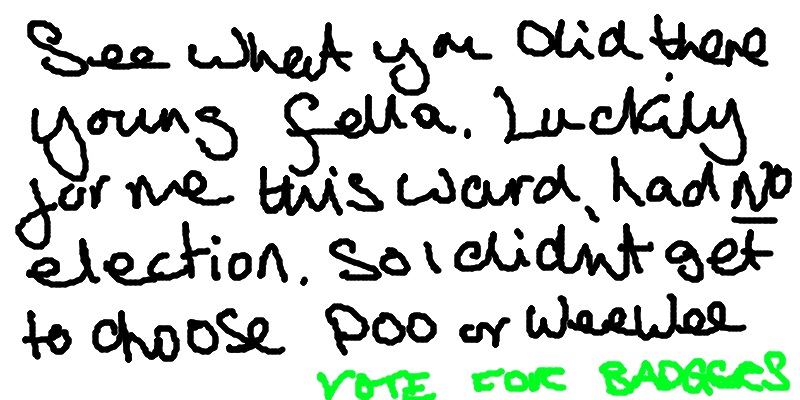 See what you did there
young fella. Luckily
for me this ward, had NO
election. So I didn't get
to choose Poo or WeeWee
VOTE FOR BADGERS